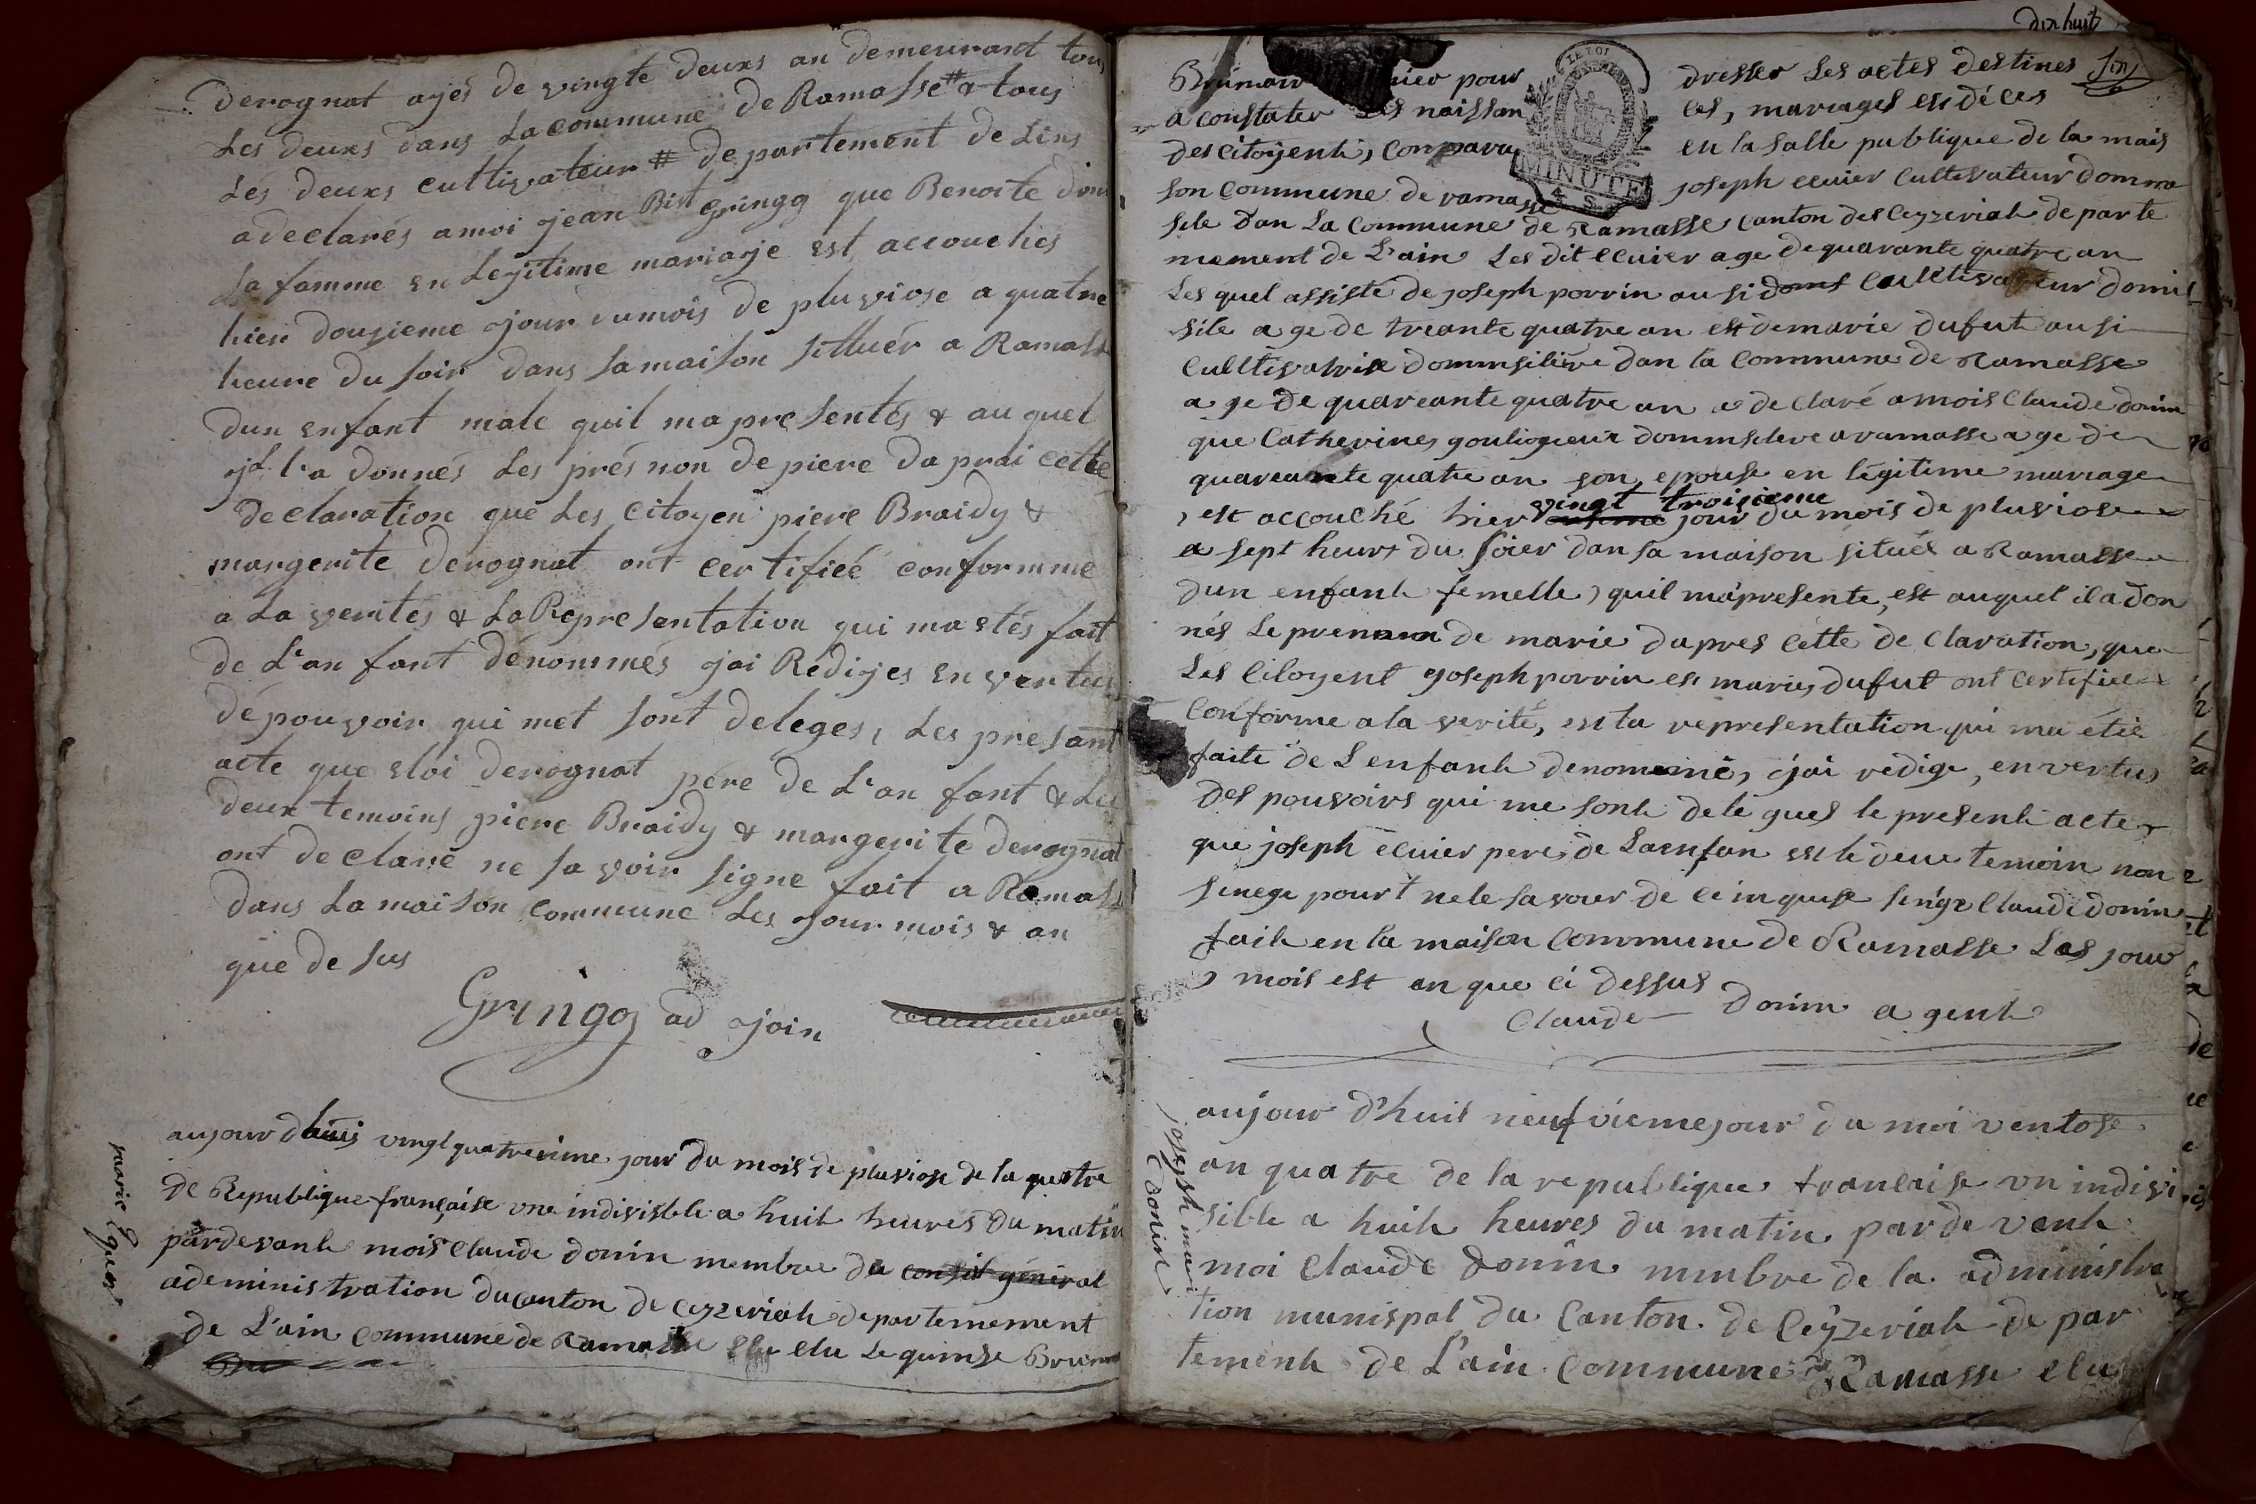 derognat ayés de vingte deuxs an demeurant tous
Les deuxs dans La commune de Ramasse # & tous
Lés deuxs cultivateur # departement de Lins
a déclarés a moi jean Bist gringoz que Benoite
Sa famme en Legitime mariagé est accouchés
hier douzieme jour du mois de pluviose a quatre
heure du soir dans sa maison sittuér a Ramasse
dun enfant male quil ma presentés & au quel
il l'a donnés Les prés non de piere da prai cette
declaration que Les citoyen piere Braidy &
margerite derognat ont certifieé conformme
a La verités & La Representation qui ma etés fait
de L'an fant dénommés jai Rediges en vertus
dépouvoir qui met sont deleges, Les presant
acte que eloi derognat pére de L'an fant & Les
deux temoins piere Braidy & margerite derognat
ont declaré ne sa voir signe fait a Ramasse
dans La maison commune Les jour mois & an
que de sus
Gringoz ad join
aujour dhuis vingt quatrerime jour du mois de pluviose de la quatre
de Republique française une indivisible a huit heures du matin
pardevant mois Claude donin membre de consil géniral
adeministration du canton de ceyzeriah departemement
de L'ain commune de Ramasse elu Le quinse Brum
marie
dix huit
Brimair pour dresser Les actes destines
a constater Les naissan ces, mariages est déces
des citoyent, Comparu en la salle publique de la mais
son commune de ramasse joseph ecuier Cultivateur domm
LA LOI
MINUTE
4 S.
sile dan La Commune de Ramasse Canton des Ceyzeriah de parte
mement de L'ain Les dit ecuier age de quarante quatre an
Les quel assiste de joseph porrin ausi domt Cultivateur domis
sile age de treante quatre an est de marie dufut ausi
Cultivatrise dommsiliere dan la Commune de Ramasse
age de quareante quatre an a declaré a mois Claude donin
que Catherines dommsilere a ramasse age de
quareante quatre an son epouse en légitime mariage
est accouché hier vingt troisieme jour du mois de pluviose
a sept heurs du soier dan sa maison situeé a Ramasse
dun enfant femelle, quil ma presente, est auquel il a don
nés Le prenom de marie dapres cette declaration, que
Les Citoyent joseph porrin est marie dufut ont certifiee
Conforme a la verité, est la representation qui ma étée
faite de L enfant denommé, j'ai redige, en vertus
des pouvoirs qui me sont delegues le present acte
que joseph écuier pere de Laenfan est le deux temoin non
sinege pour nele savoer de ce inquise singe Claude donin
fait en la maison commune de Ramasse Les jour
mois est an que ci dessus
Claude Donin agent
joseph
donin
aujour d'huis neufvieme jour du moi ventose
an quatre de la republique francaise un indivi
sible a huit heures du matin pardevent
moi Claude Donin membre de la administra
tion munispal du Canton de Ceyzeriah depar
tement de L'ain Commune de Ramasse elu